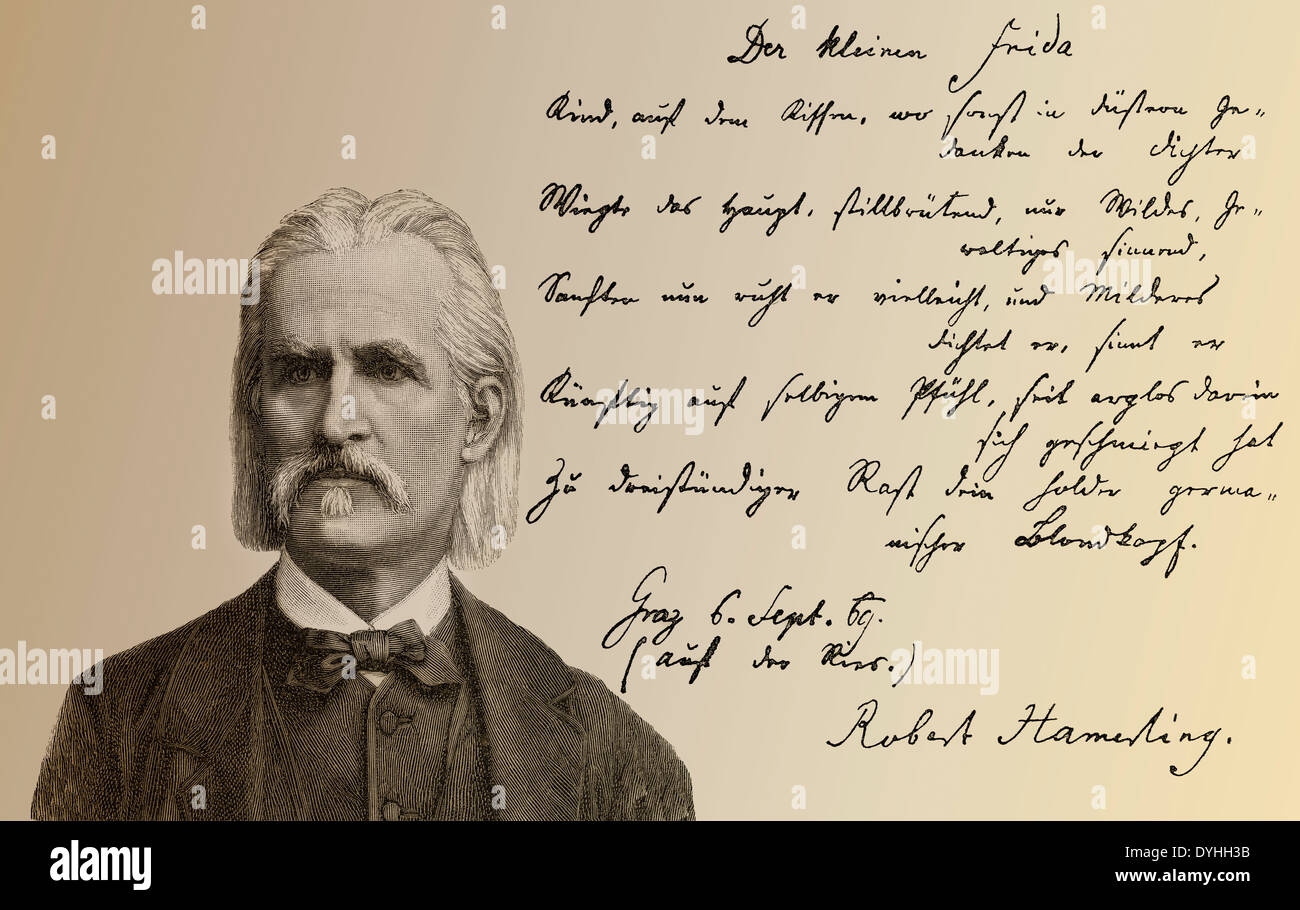 Der kleinen Frida
Kind, auf dem Kissen, wo sonst in düstern Ge-
danken der Dichter
Wiegte das Haupt, stillbrütend, nur Wildes, Ge-
waltiges sinnend,
Sanfter nun ruht er vielleicht, und Milderes
dichtet er, sinnt er
Künftig auf selbigem Pfühl, seit arglos darin
sich geschmiegt hat
Zu dreistündiger Rast dein holder germa-
nischer Blondkopf.
Graz 6. Sept. 69.
(Auf der Ries.)
Robert Hamerling.
alamy
Image ID: DYHH3B
www.alamy.com